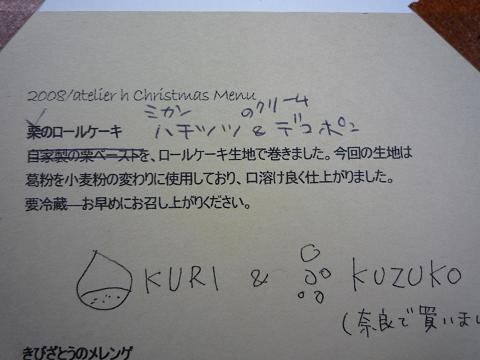 2008/atelier h Christmas Menu
ミカン のクリーム
栗のロールケーキ ハチミツ & デコポン
自家製の栗ペーストを、ロールケーキ生地で巻きました。今回の生地は
葛粉を小麦粉の変わりに使用しており、口溶け良く仕上がりました。
要冷蔵 お早めにお召し上がりください。
KURI & KUZUKO
(奈良で買いまし
きびざとうのメレンゲ